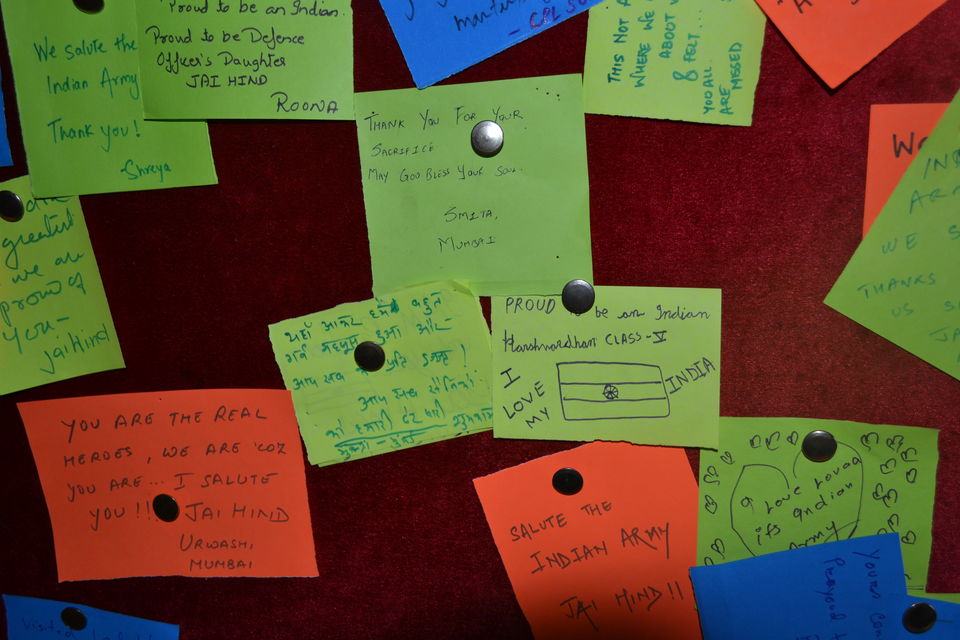 We salute the
Indian Army
Thank you!
Shreya
Proud to be an Indian.
Proud to be Defence
Officer's Daughter
JAI HIND
ROONA
THIS NOT
WHERE WE
ABOUT
& FELT..
YOU ALL.
ARE MISSED
THANK YOU FOR YOUR
SACRIFICE
MAY GOD BLESS YOUR SOUL.
SMITA,
MUMBAI
greatest
we are
proud of
you-
jai Hind
WE
THANKS
US
यहाँ आकर हमें बहुत
गर्व महसूस हुआ और
आप सब
आप सब सैनिकों
को हमारी
PROUD be an Indian
Harshvardhan CLASS-V
I
LOVE
MY
INDIA
YOU ARE THE REAL
HEROES, WE ARE 'COZ
YOU ARE... I SALUTE
YOU!!! JAI HIND
URWASHI,
MUMBAI
SALUTE THE
INDIAN ARMY
JAI HIND!!
I love
Indian
Army
Yours
Visited